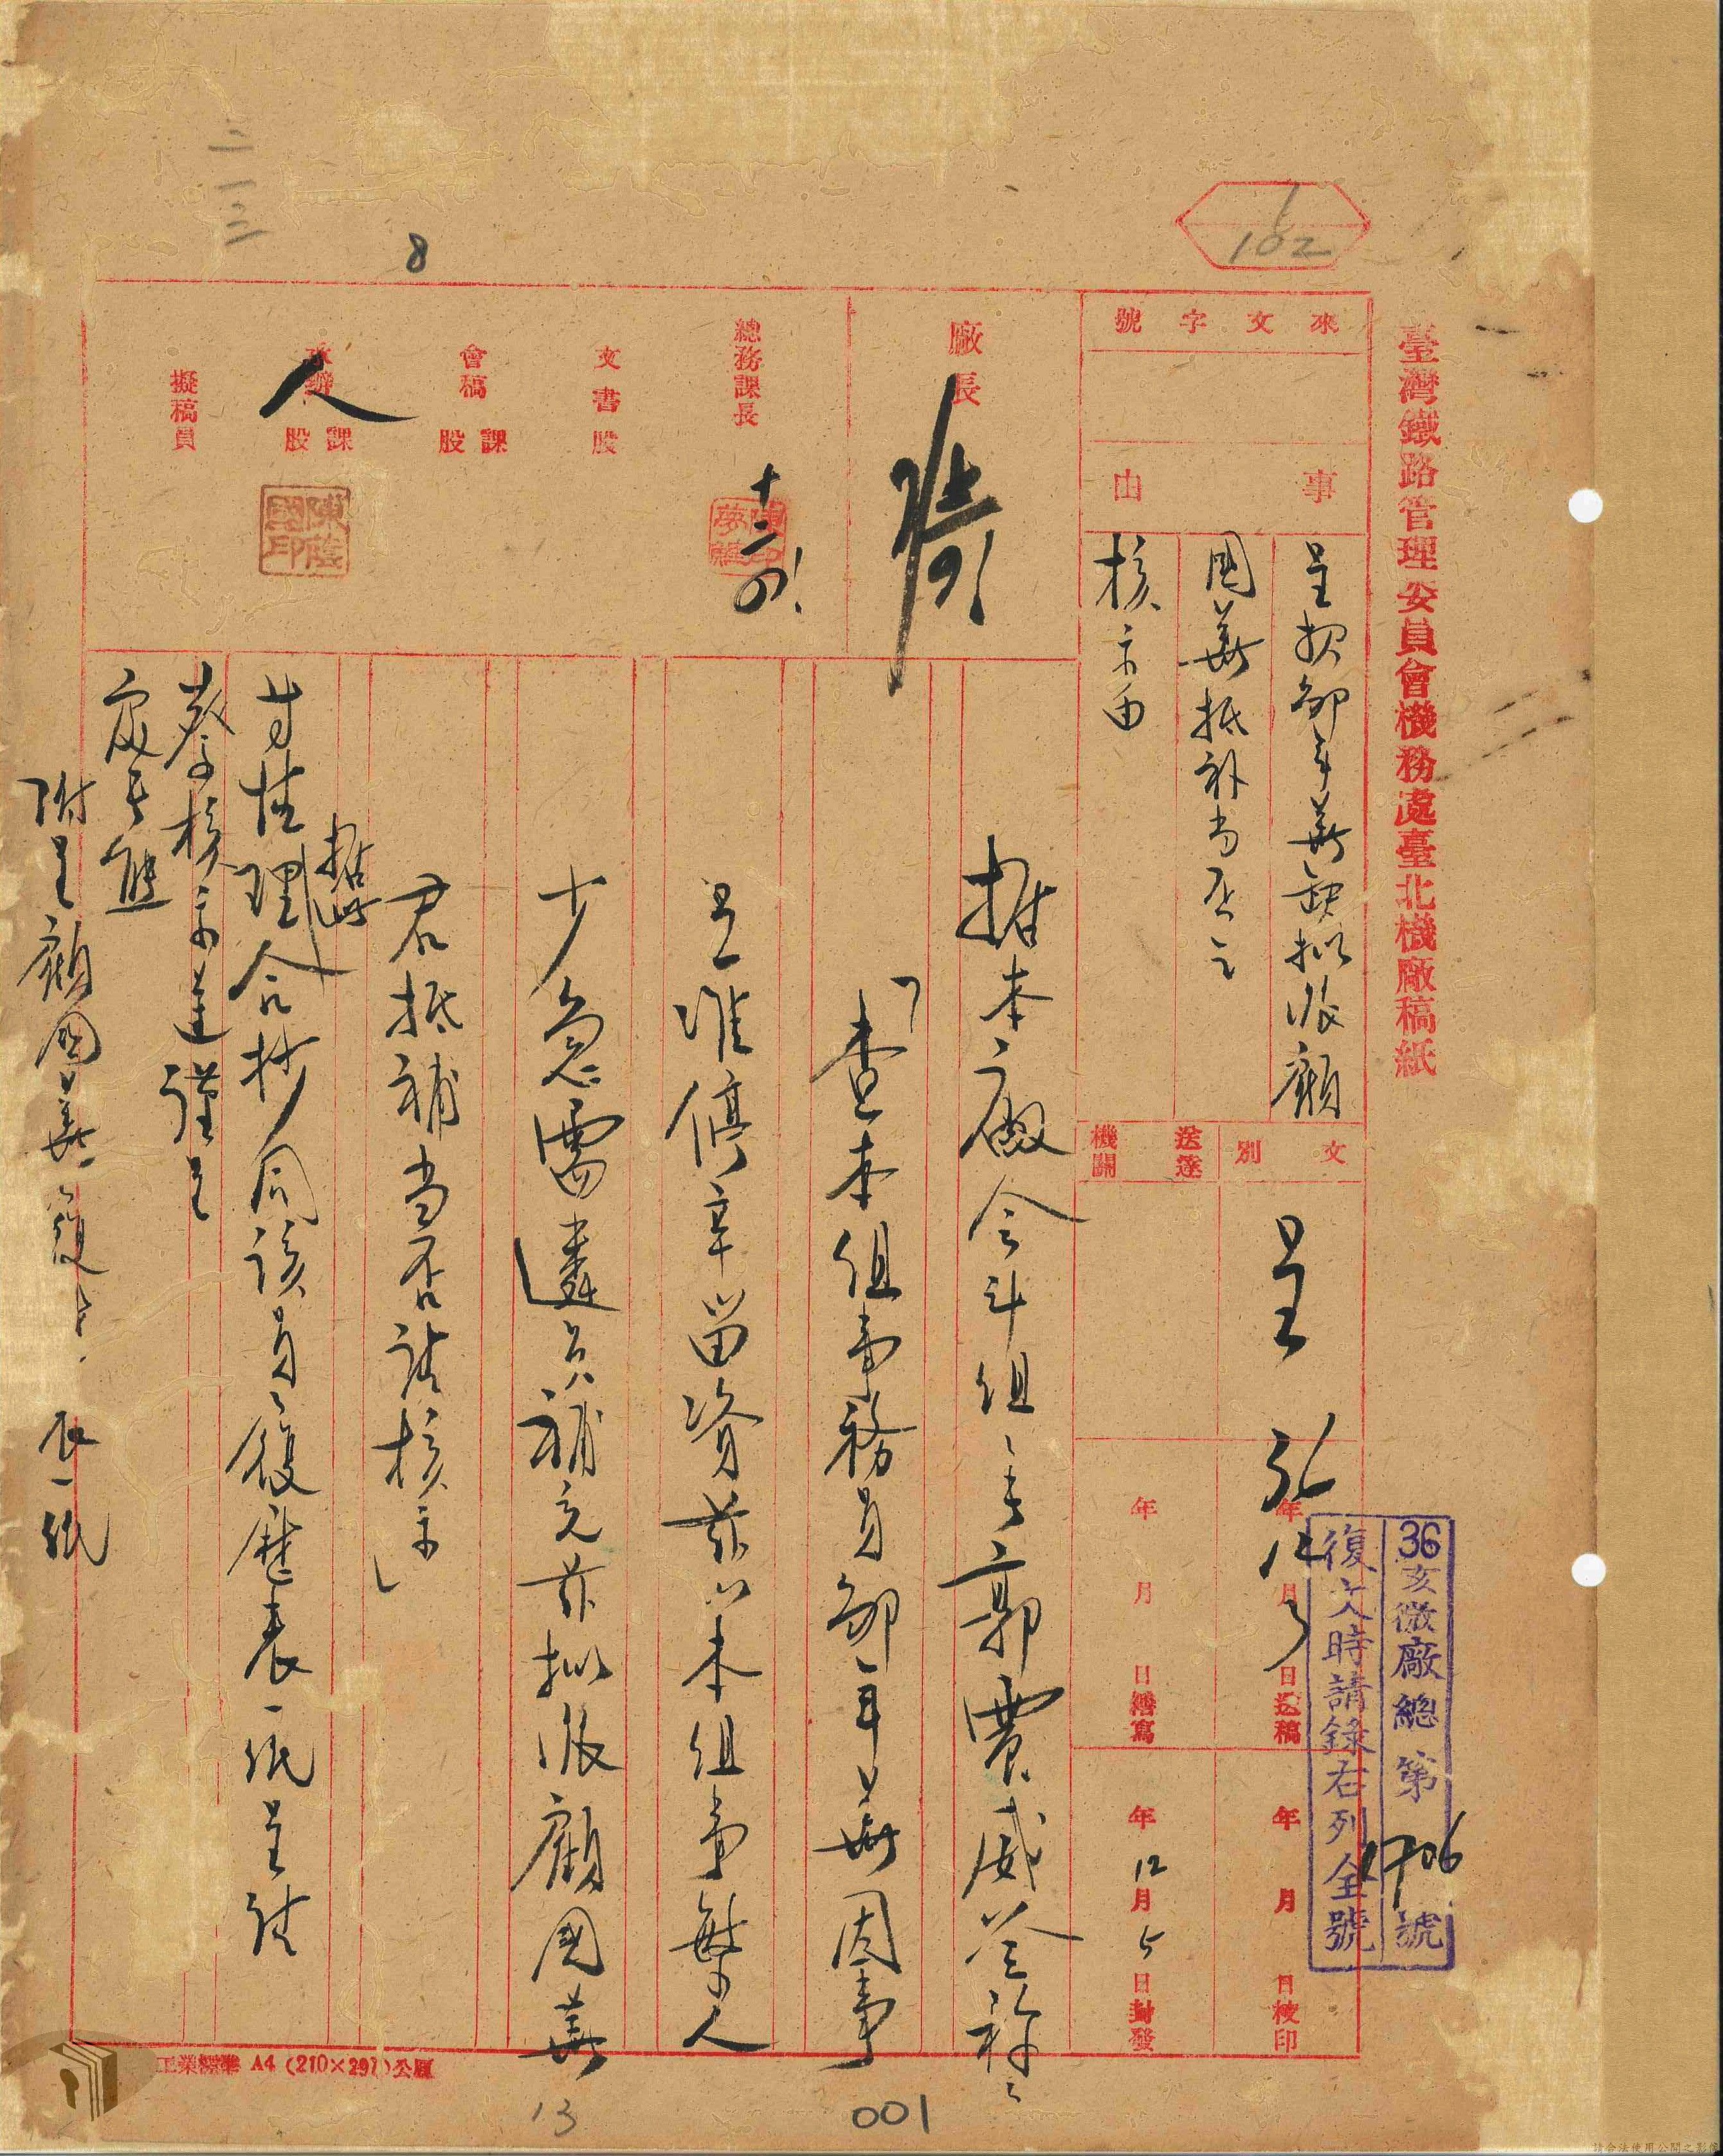 臺灣鐵路管理委員會機務處臺北機廠稿紙
1
102
來文字號
事由
呈報鄒年華缺擬派顧
國華抵補當否之
核示由
文別
呈
送達機關
36 年 12 月 3 日送稿
年 月 日繕寫
年 月 日校印
年 12 月 5 日封發
36亥機廠總第1706號
復文時請錄右列全號
廠長
總務課長
十二 4/
文書股
會稿 課股
承辦 課股
人
陳蔭國印
擬稿員
8
二一三
據本廠會計組主任郭震威簽稱:
「查本組事務員鄒年華因事
呈准停辛留資茲以本組事繁人
少急需遴員補充茲擬派顧國華
君抵補當否請核示」
據此
等情理合抄同該員履歷表一紙呈請
鑒核示遵謹呈
處長熊
附呈顧國華履歷表一紙
工業標準 A4 (210×297)公厘
13
001
請合法使用公開之影像